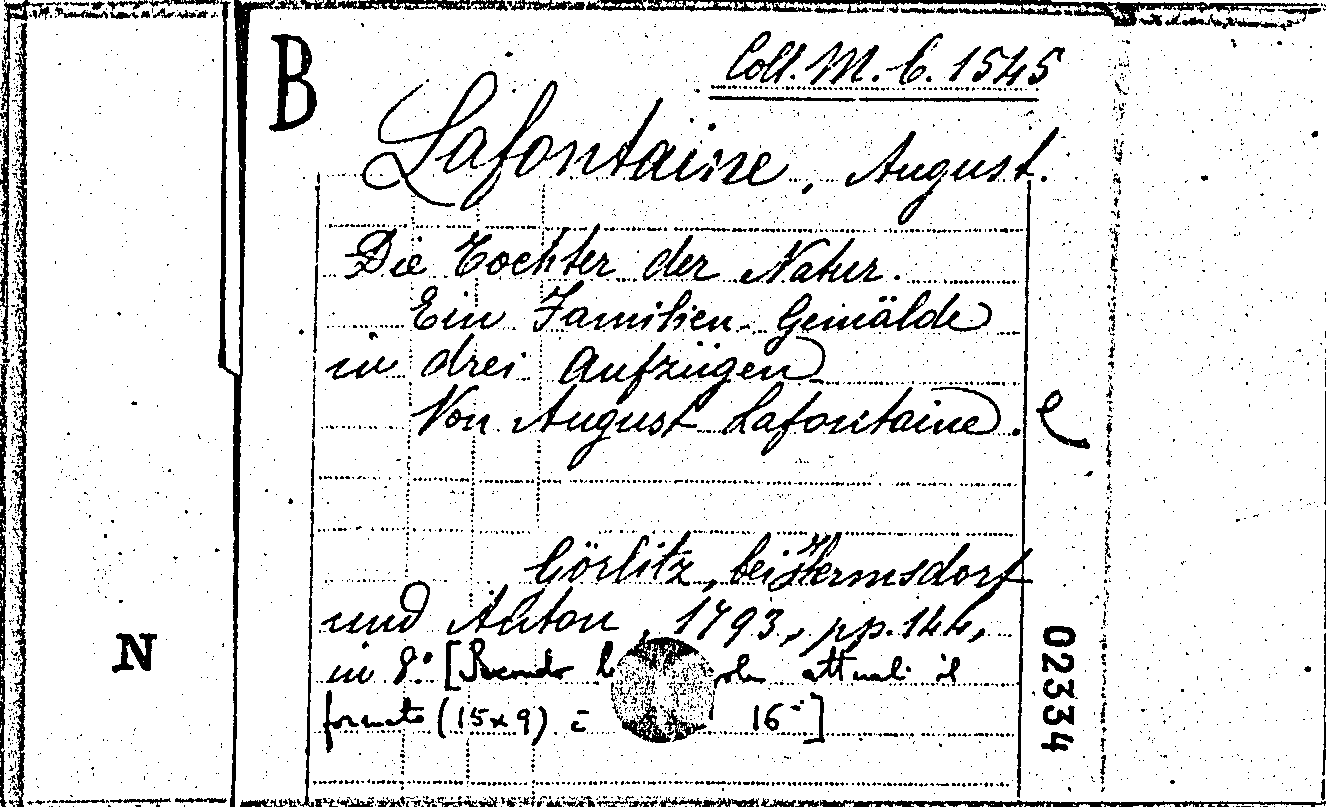 B
Coll. M. C. 1545
Lafontaine, August.
Die Tochter der Natur.
Ein Familien-Gemälde
in drei Aufzügen
Von August Lafontaine.
Görlitz, bei Hermsdorf
und Anton, 1793, pp. 144,
in 8.° [Secondo le attuali il
formato (15x9) è 16°]
N
02334